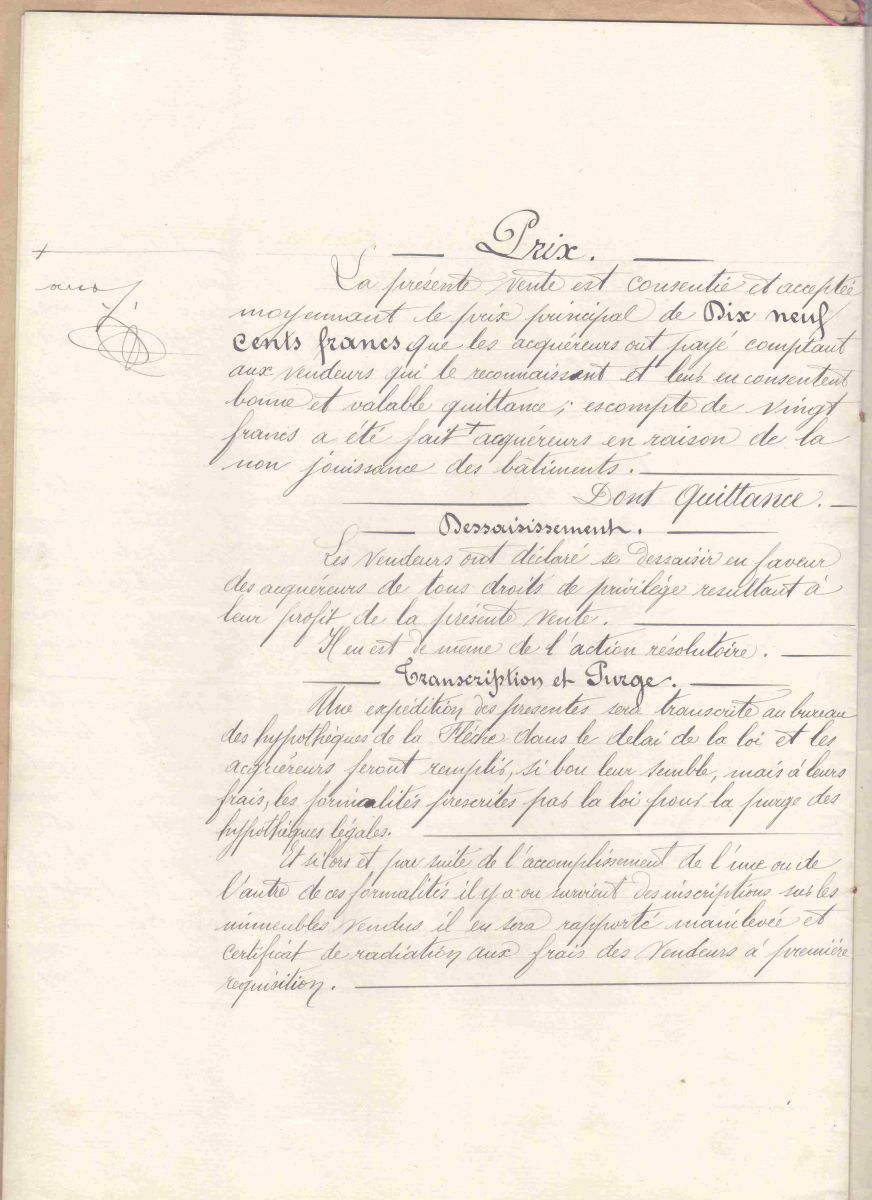 Prix.
+
aux
La présente Vente est consentie et acceptée
moyennant le prix principal de Dix neuf
cents francs que les acquéreurs ont payé comptant
aux Vendeurs qui le reconnaissent et leur en consentent
bonne et valable quittance; escompte de Vingt
francs a été fait + acquéreurs en raison de la
non jouissance des bâtiments.
Dont Quittance.
Dessaisissement.
Les Vendeurs ont déclaré se dessaisir en faveur
des acquéreurs de tous droits de privilége resultant à
leur profit de la présente Vente.
Il en est de même de l'action résolutoire.
Transcription et Purge.
Une expédition des presentes sera transcrite au bureau
des hypothèques de la Flèche dans le delai de la loi et les
acquéreurs feront remplir, si bon leur semble, mais à leurs
frais, les formalités prescrites par la loi pour la purge des
hypothèques légales.
Et si lors et par suite de l'accomplissement de l'une ou de
l'autre de ces formalités il y a ou survient des inscriptions sur les
immeubles Vendus il en sera rapporté mainlevée et
certificat de radiation aux frais des Vendeurs à première
requisition.